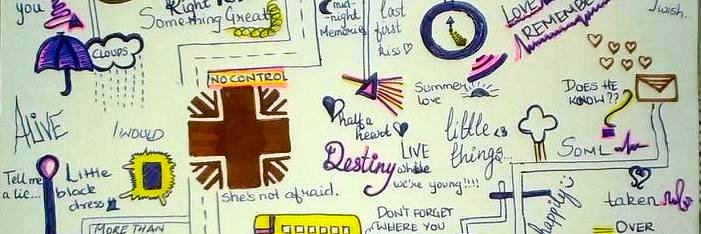 you
Right
Something Great
mid-
night
Memories
last
first
kiss
LOVE
REMEMBER
I wish...
CLOUDS
NO CONTROL
Summer
love
DOES HE
KNOW??
ALIVE
I WOULD
half a
heart
little
things...
SOML
Destiny
LIVE
while
we're young!!!!
Tell me
a lie...
Little
black
dress
she's not afraid.
taken
happily
MORE THAN
DON'T FORGET
WHERE YOU
OVER